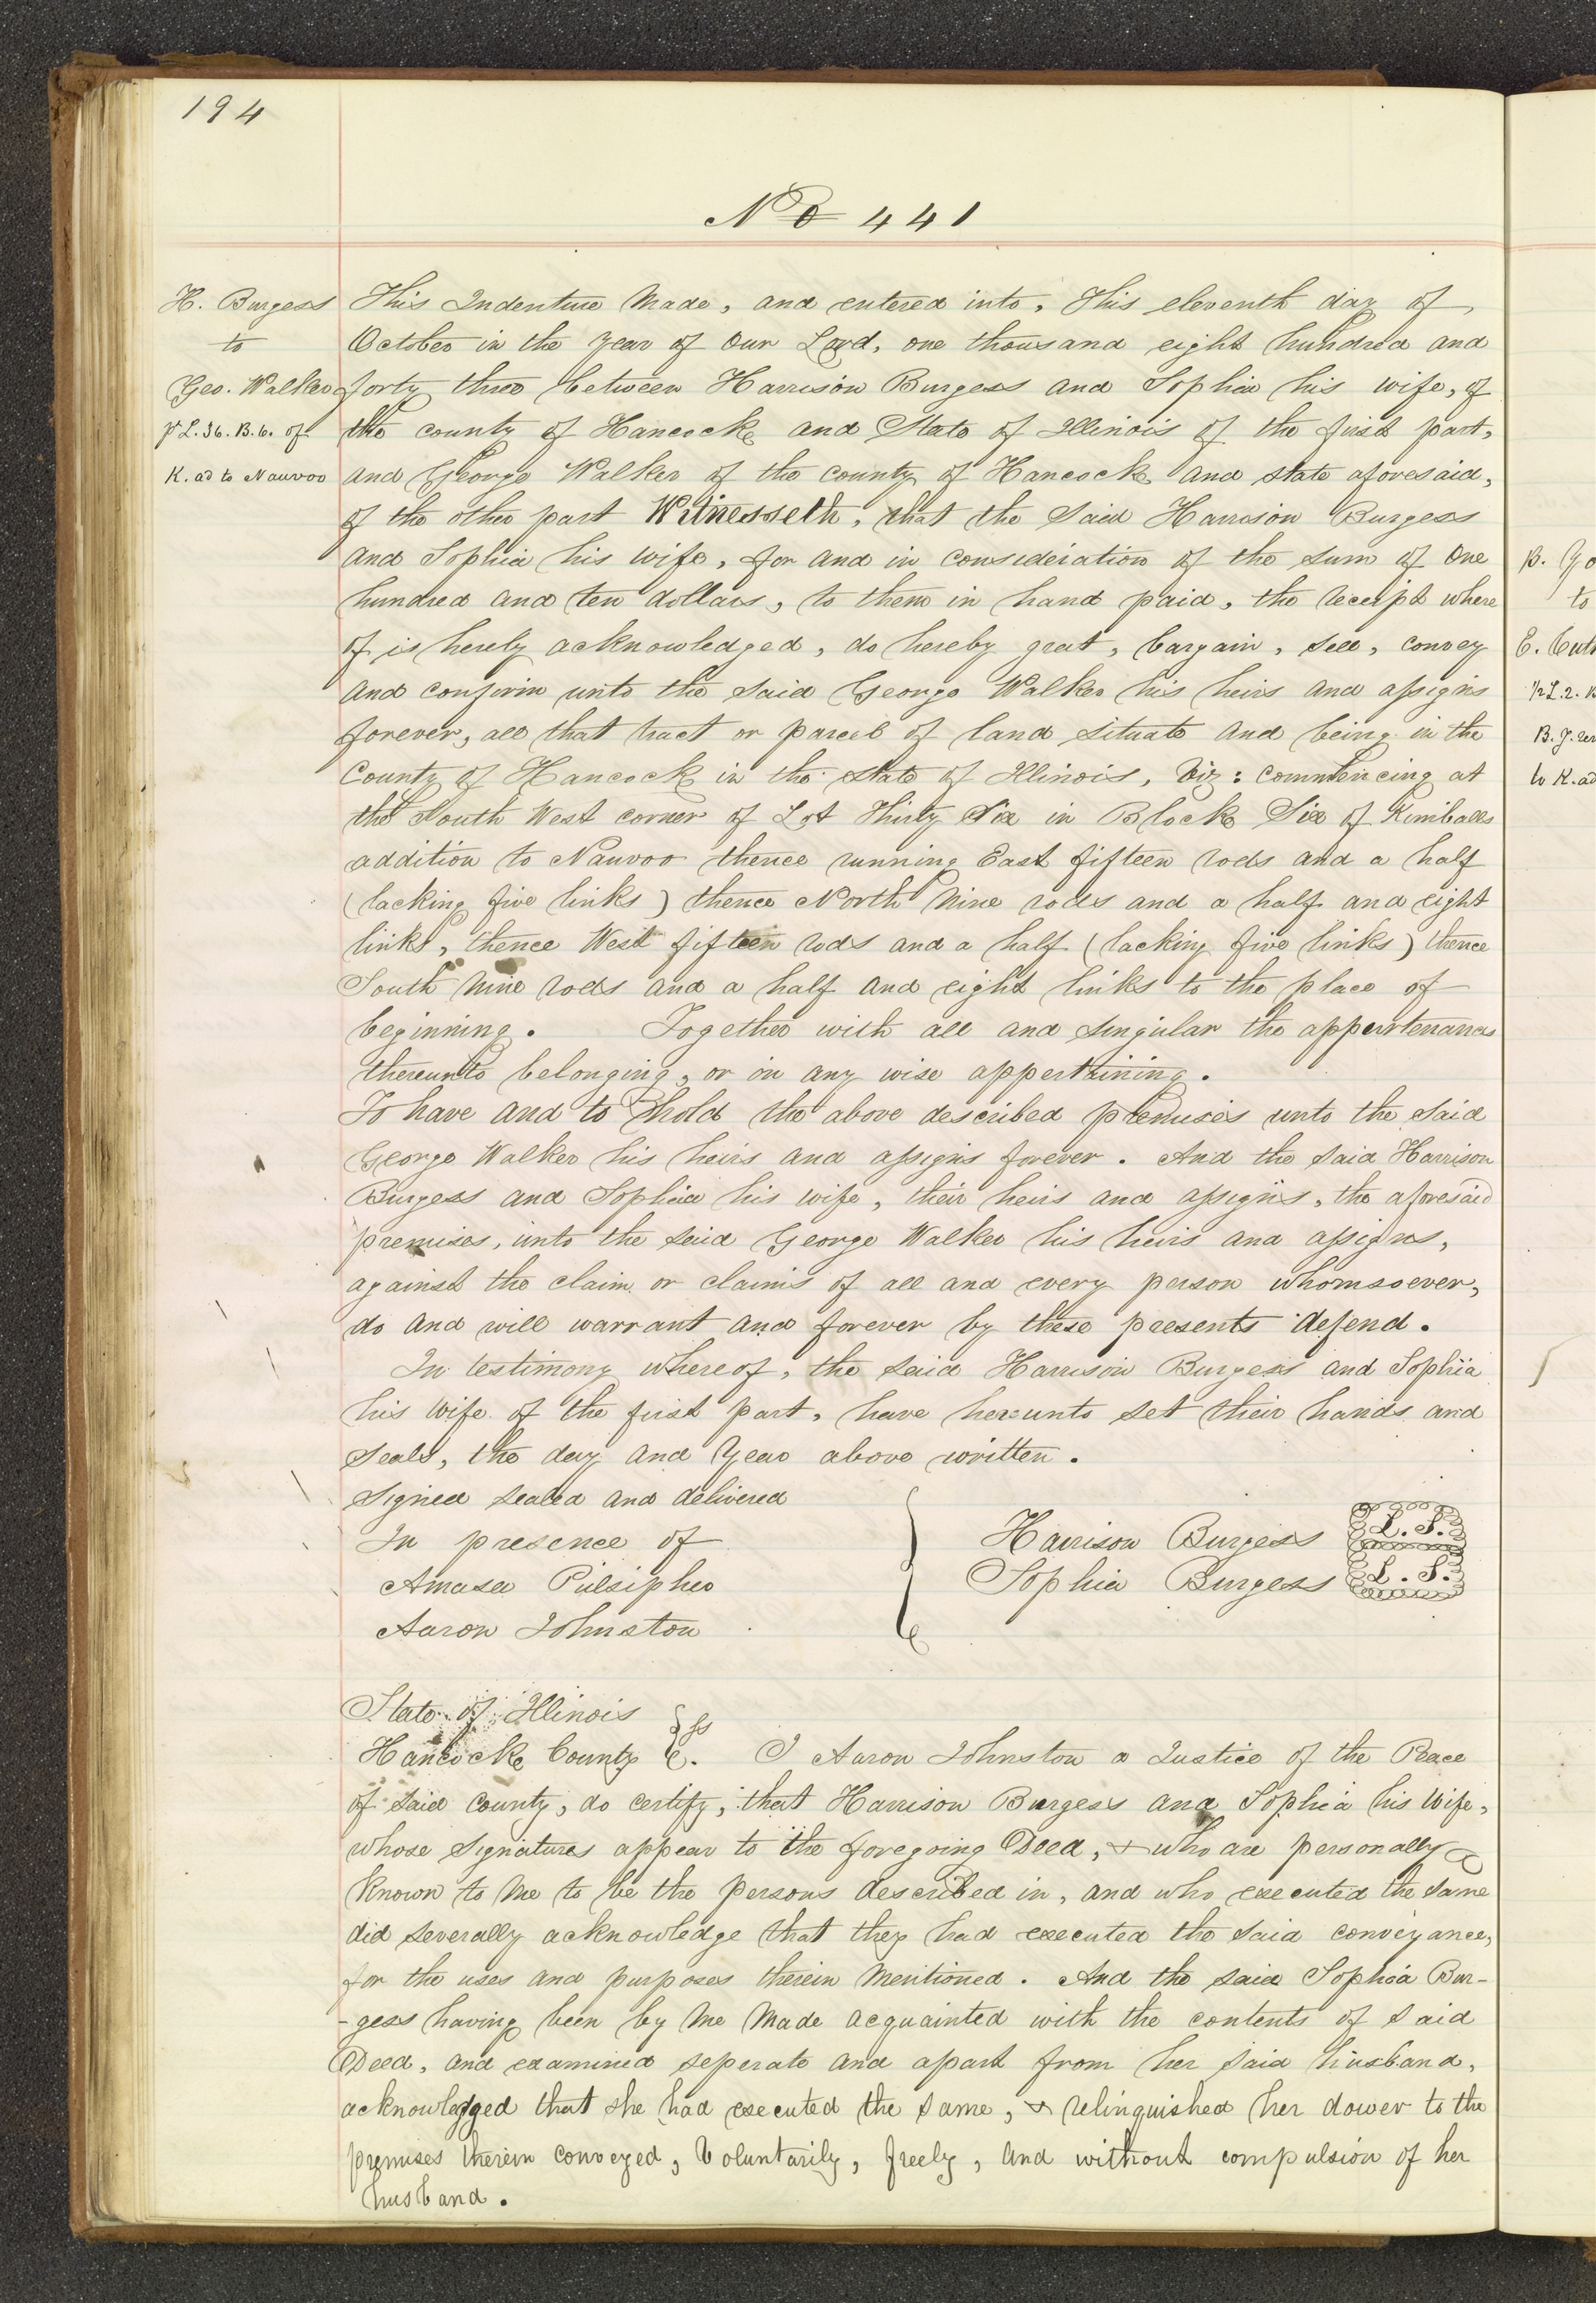 194
No 441
H. Burgess
to
Geo. Walker
pt L. 36. B. 6. of
K. ad to Nauvoo
This Indenture Made, and entered into, This eleventh day of
October in the year of our Lord, one thousand eight hundred and
forty three between Harrison Burgess and Sophia his wife, of
the county of Hancock and State of Illinois of the first part,
and George Walker of the county of Hancock and state aforesaid,
of the other part Witnesseth, that the Said Harrison Burgess
and Sophia his wife, for and in consideration of the sum of One
hundred and ten dollars, to them in hand paid, the receipt where
of is hereby acknowledged, do hereby grat, bargain, sell, convey
and confirm unto the said George Walker his heirs and assigns
forever, all that tract or parcel of land situate and being in the
County of Hancock in the state of Illinois, Viz: commencing at
the South West corner of Lot Thirty Six in Block Six of Kimballs
addition to Nauvoo thence running East fifteen rods and a half
(lacking five links) thence North Nine rods and a half and eight
links, thence West fifteen rods and a half (lacking five links) thence
South Nine rods and a half and eight links to the place of
beginning. Together with all and singular the appurtenances
thereunto belonging, or in any wise appertaining.
To have and to hold the above described premises unto the said
George Walker his heirs and assigns forever. And the said Harrison
Burgess and Sophia his wife, their heirs and assigns, the aforesaid
premises, unto the said George Walker his heirs and assigns,
against the claim or claims of all and every person whomsoever,
do and will warrant and forever by these presents defend.
In testimony whereof, the said Harrison Burgess and Sophia
his wife of the first part, have hereunto set their hands and
Seals, the day and Year above written.
Signed sealed and delivered
In presence of
Amasa Pulsipher
Aaron Johnston
Harrison Burgess L. S.
Sophia Burgess L. S.
State of Illinois
Hancock County ss. I Aaron Johnston a Justice of the Peace
of said county, do certify, that Harrison Burgess and Sophia his Wife,
whose Signatures appear to the foregoing Deed, & who are personally
Known to me to be the persons described in, and who executed the same
did severally acknowledge that they had executed the said conveyance,
for the uses and purposes therein Mentioned. And the said Sophia Bur-
-gess having been by Me Made acquainted with the contents of said
Deed, and examined seperate and apart from her said husband,
acknowledged that she had executed the same, & relinquished her dower to the
premises therein conveyed, Voluntarily, freely, and without compulsion of her
husband.
to